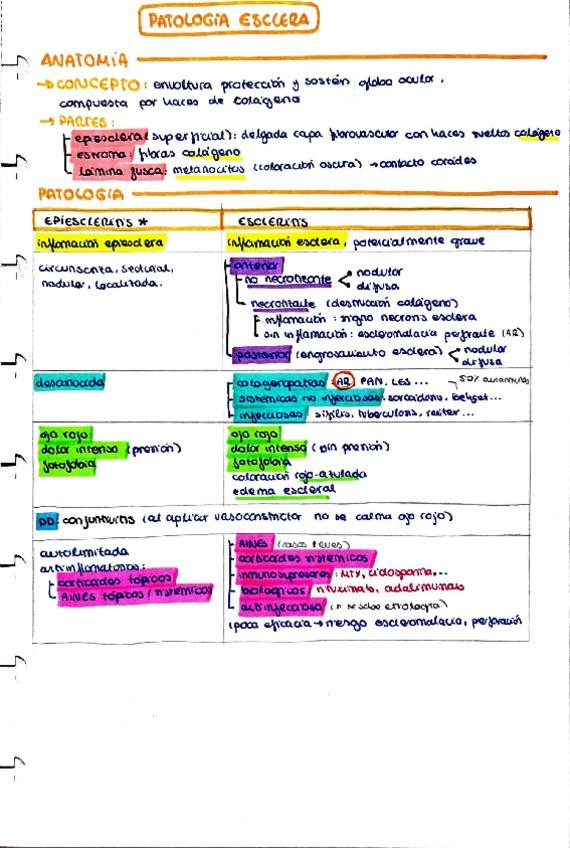 PATOLOGÍA ESCLERA
ANATOMÍA
→ CONCEPTO: envoltura protección y sostén globo ocular,
compuesta por haces de colágeno
→ PARTES:
epiesclera (superficial): delgada capa fibrovascular con haces sueltos colágeno
estroma: fibras colágeno
lámina fusca: melanocitos (coloración oscura) → contacto coroides
PATOLOGÍA
EPIESCLERITIS * ESCLERITIS
inflamación epiesclera inflamación esclera, potencialmente grave
circunscrita, sectorial,
nodular, localizada.
anterior
no necrotizante < nodular
difusa
necrotizante (destrucción colágeno)
inflamación: signo necrosis esclera
sin inflamación: escleromalacia perforante (AR)
posterior (engrosamiento esclera) < nodular
difusa
desconocida
colagenopatías AR, PAN, LES... 50% autoinmunes
sistémicas no infecciosas: sarcoidosis, Behçet...
infecciosas: sífilis, tuberculosis, reiter...
ojo rojo
dolor intenso (presión)
fotofobia
ojo rojo
dolor intenso (sin presión)
fotofobia
coloración rojo-azulada
edema escleral
DD: conjuntivitis (al aplicar vasoconstrictor no se calma ojo rojo)
autolimitada
antiinflamatorios:
corticoides tópicos
AINES tópicos / sistémicos
AINES (casos leves)
corticoides sistémicos
inmunosupresores: MTX, ciclosporina...
biológicos: rituximab, adalimumab
antiinfeccioso (según etiología)
(poca eficacia → riesgo escleromalacia, perforación